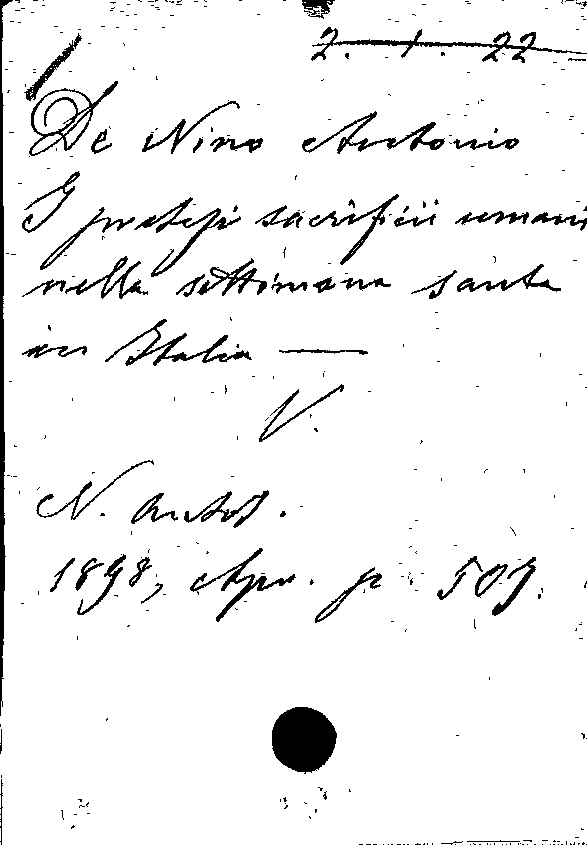 2. 1. 22
De Nino Antonio
I pretesi sacrificii umani
nella settimana santa
in Italia —
V.
N. Antol.
1898, Apr. p. 507.